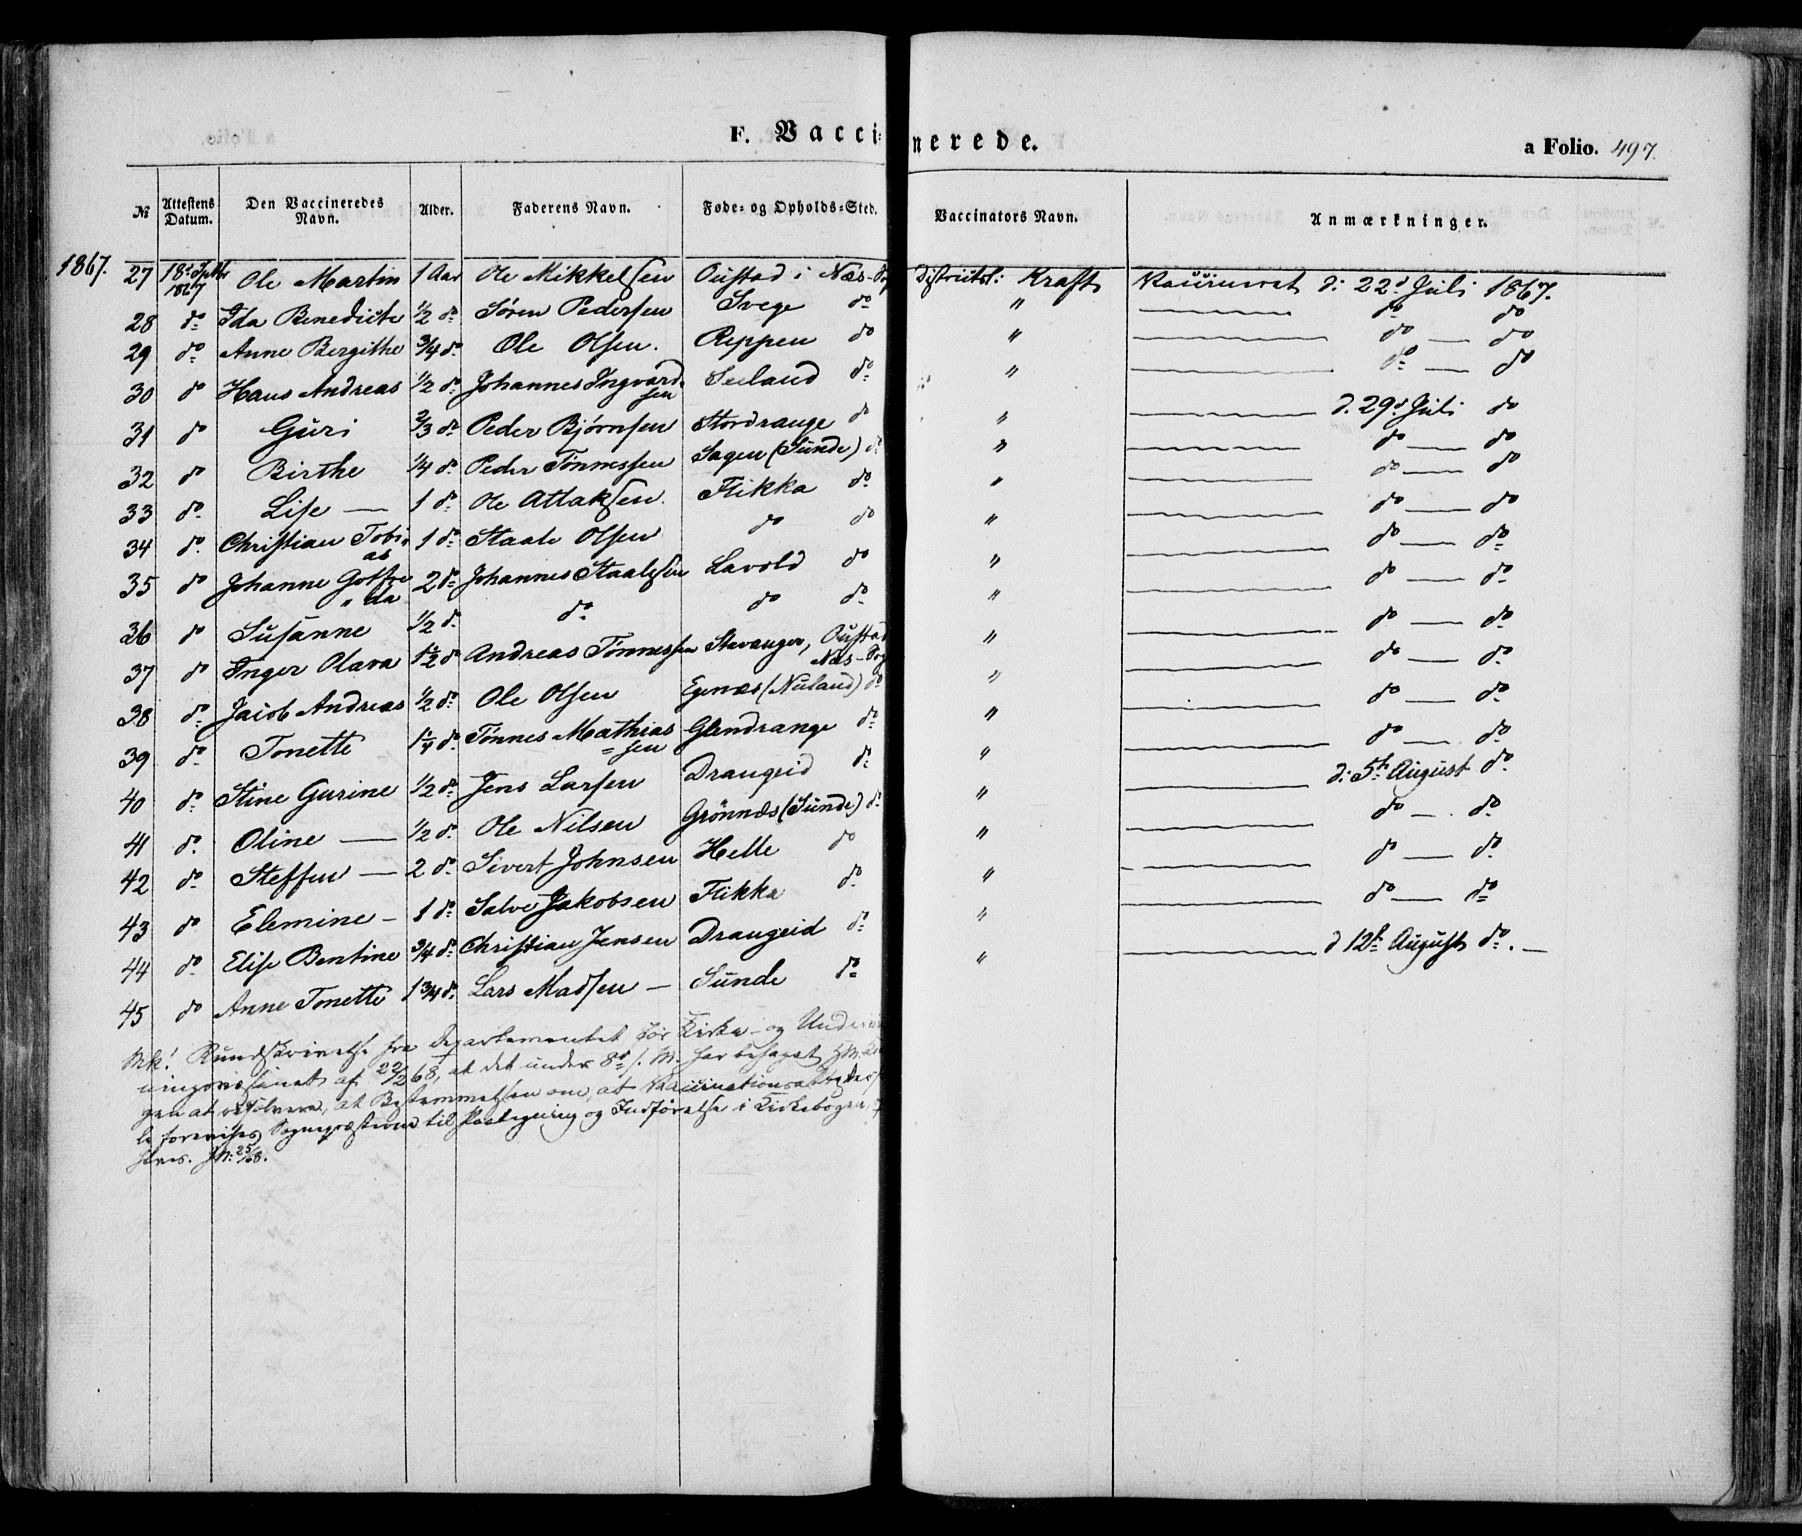 F. Vaccinerede. a Folio. 497.
№ Attestens Datum. Den Vaccineredes Navn. Alder. Faderens Navn. Føde- og Opholds-Sted. Vaccinators Navn. Anmærkninger.
1867. 27 18d Septbr 1867 Ole Martin 1 Aar Ole Mikkelsen Oustad i Næs-Sog Districtsl: Kraft Vaccineret d: 22d Juli 1867.
28 do Ida Benedicte 1/2 do Søren Pedersen Svege do " — do do
29 do Anne Bergithe 3/4 do Ole Olsen. Reppen do " — do — do
30 do Hans Andreas 1/2 do Johannes Ingvardsen Seeland do " — do — do
31 do Guri 2/3 do Peder Bjørnsen Stordrange do " — d. 29d Juli do
32 do Birthe 1/4 do Peder Tønnessen Sagen (Sunde) do " — do — do
33 do Lise — 1 do Ole Atlaksen. Flikka do " — do — do
34 do Christian Tobias 1 do Staale Olsen do do " — do — do
35 do Johanne Gotfreda 2 do Johannes Staalesen Lavold do " — do — do
36 do Susanne 1/2 do do do do " — do — do
37 do Inger Olava 1 1/2 do Andreas Tønnessen Stavanger, Oustad Næs-Sog " — do — do
38 do Jacob Andreas 1/2 do Ole Olsen Egenæs (Nuland) do " — do — do
39 do Tonette 1 1/4 do Tønnes Mathiassen Glendrange do " — do — do
40 do Stine Gurine 1/2 do Jens Larsen Drangeid do " — do — do
41 do Oline — 1/2 do Ole Nilsen Grønnæs (Sunde) do " — d: 5te August do
42 do Steffen — 2 do Sivert Johnsen Helle do " — do — do
43 do Elemine — 1 do Salve Jakobsen Flikka do " — do — do
44 do Elise Bentine 3/4 do Christian Jensen Drangeid do " — do — do
45 do Anne Tonette 1 3/4 do Lars Madsen — Sunde do " — d 12te August do. —
Mk! Rundskrivelse fra Departementet for Kirke- og Underviis
ningsvæsenet af 22/2 68, at det under 8de f. M. har behaget HM. Kon
gen at resolvere, at Bestemmelsen om, at Vaccinationsattester
forevises Sognepræsterne til Paategning og Indførelse i Kirkebogen,